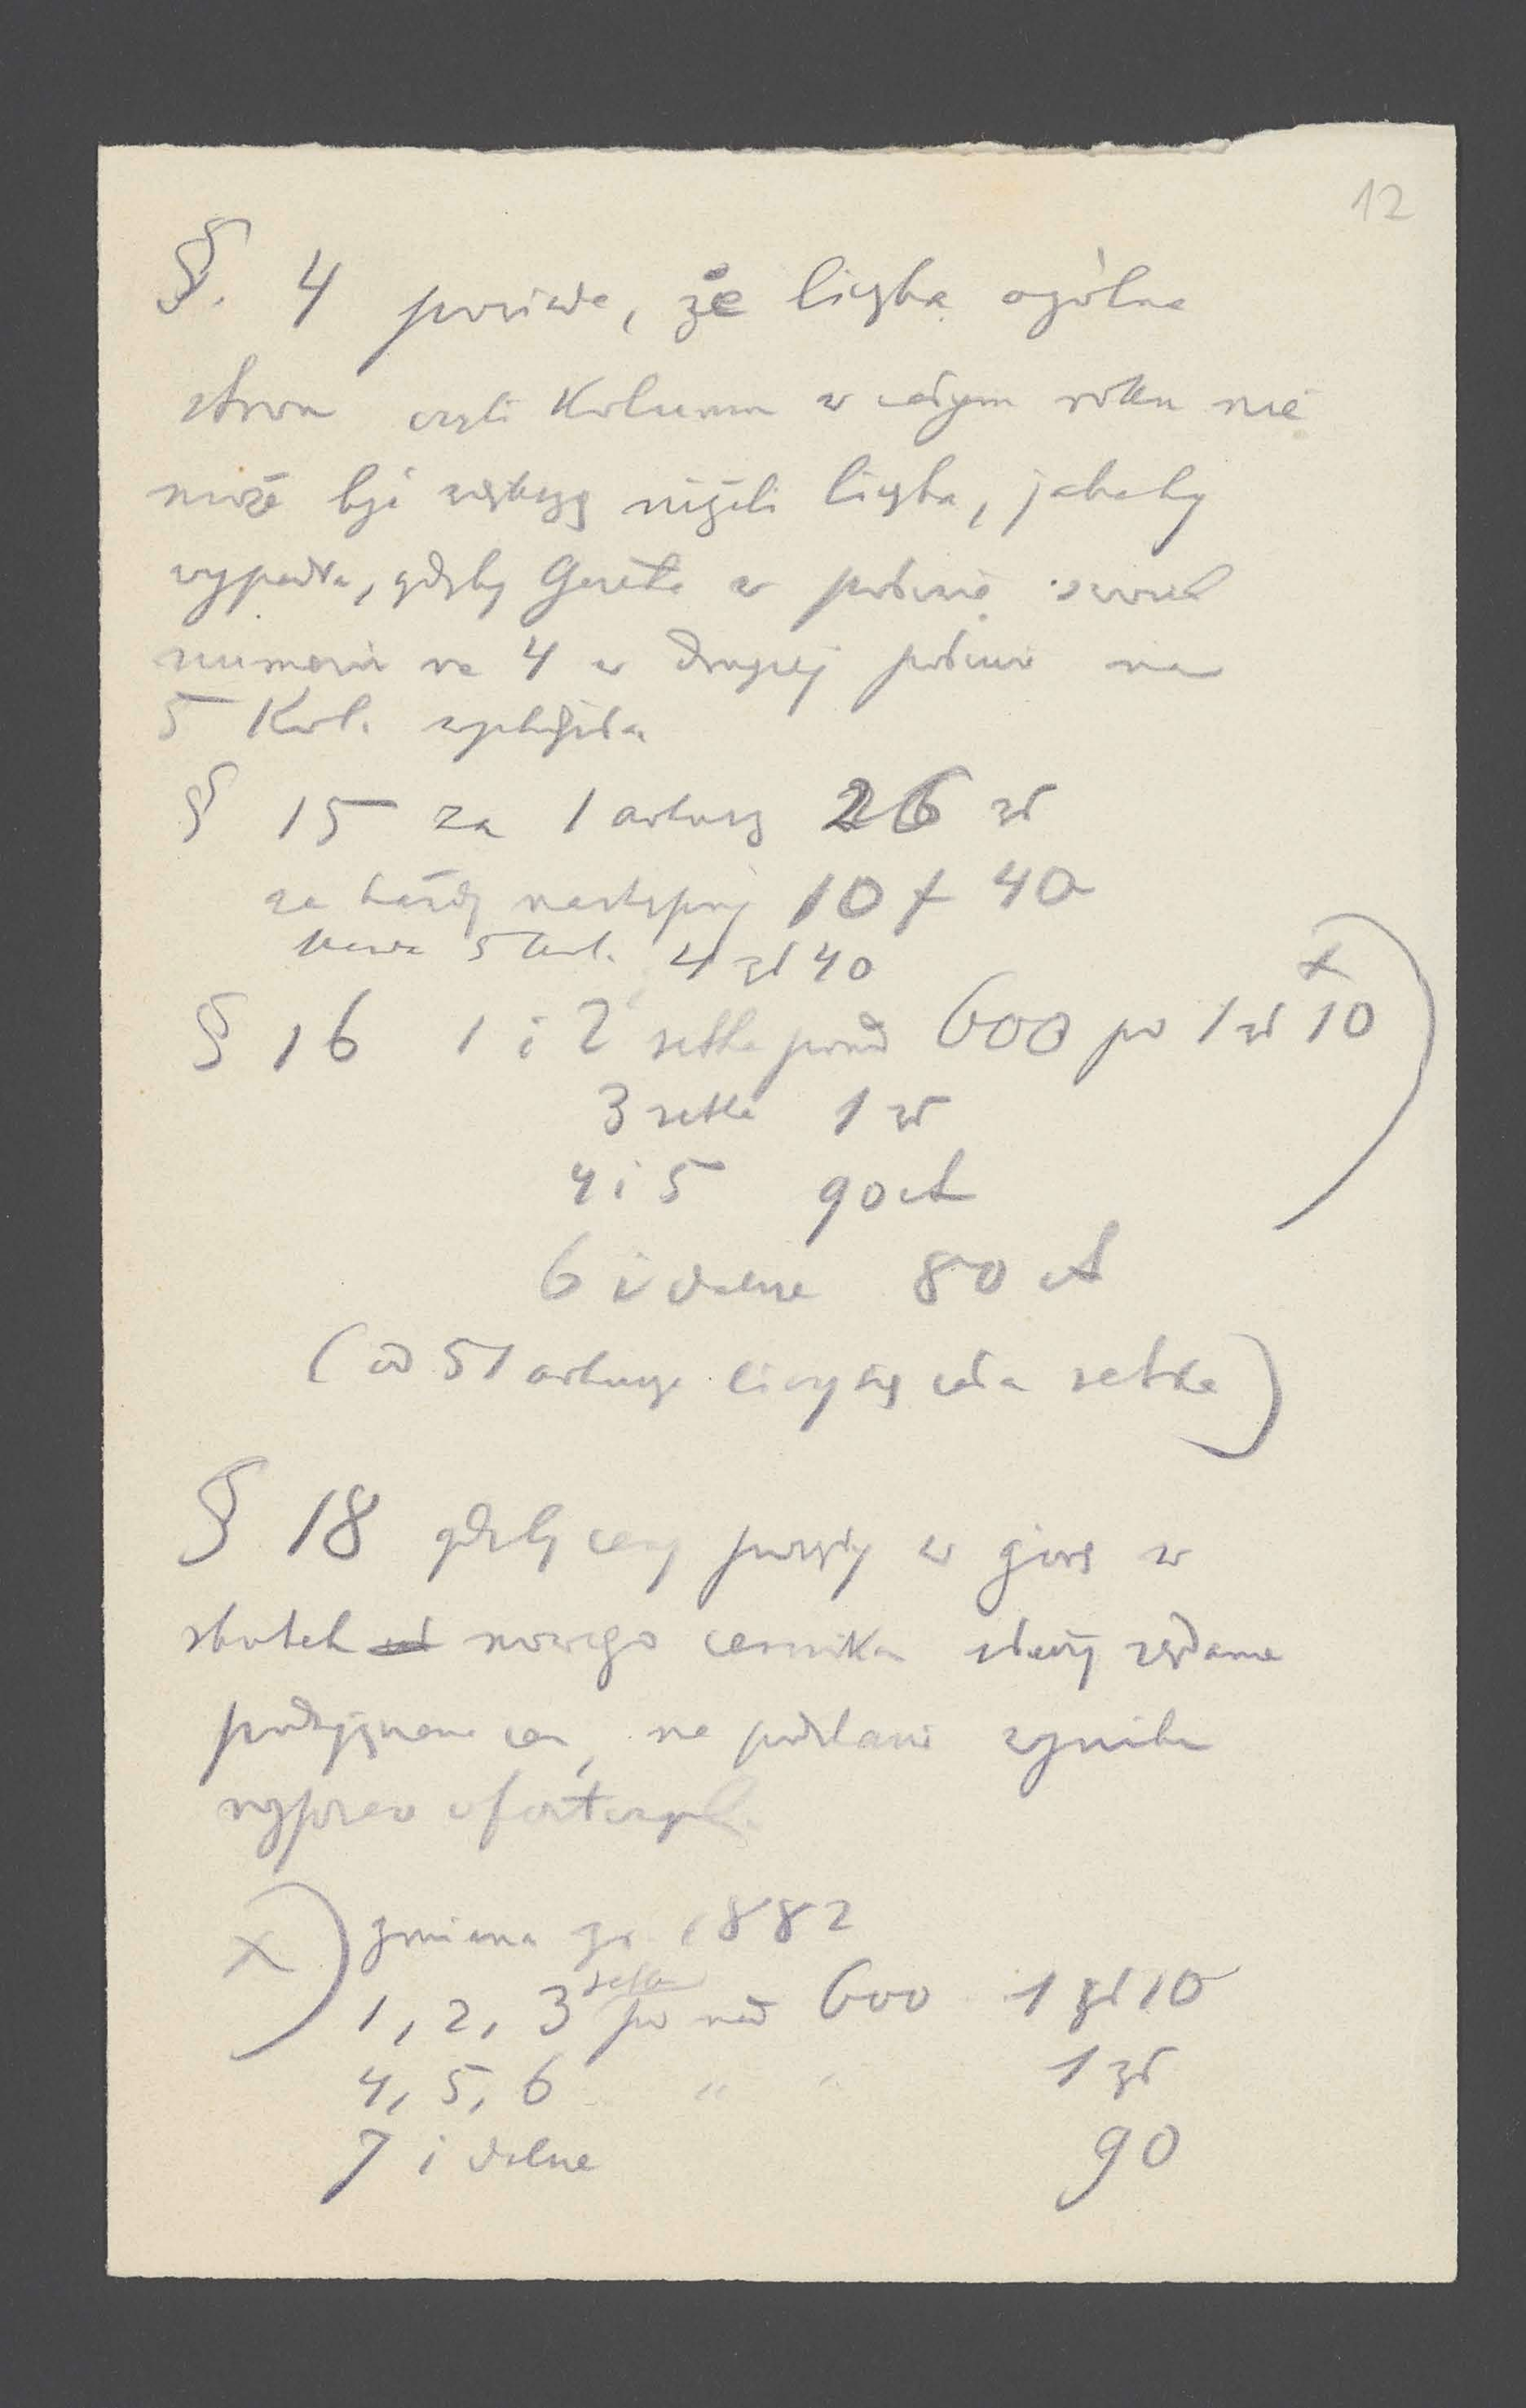 12
§. 4 powiada, że liczba ogólna
stron czyli Kolumn w całym roku nie
może być większą niżeli liczba, jakaby
wypadła, gdyby Gazeta w połowie swoich
numerów na 4 w drugiej połowie na
5 Kol. wychodziła
§ 15 za 1 arkusz 26 zł
za każdy następny 10 + 40
5 kol. 4 zł 40
§ 16 1 i 2 setka ponad 600 po 1 zł 10 x)
3 setka 1 zł
4 i 5 90 ct
6 i dalsze 80 ct
(od 51 arkusza liczy się cała setka)
§ 18 gdyby ceny poszły w górę w
skutek nowego cennika służy żądanie
podwyższenia cen, na podstawie wyniku
rozpraw ofertowych.
x) zmiana z r. 1882
1, 2, 3 setka po nad 600 1 zł 10
4, 5, 6 " " 1 zł
7 i dalsze 90